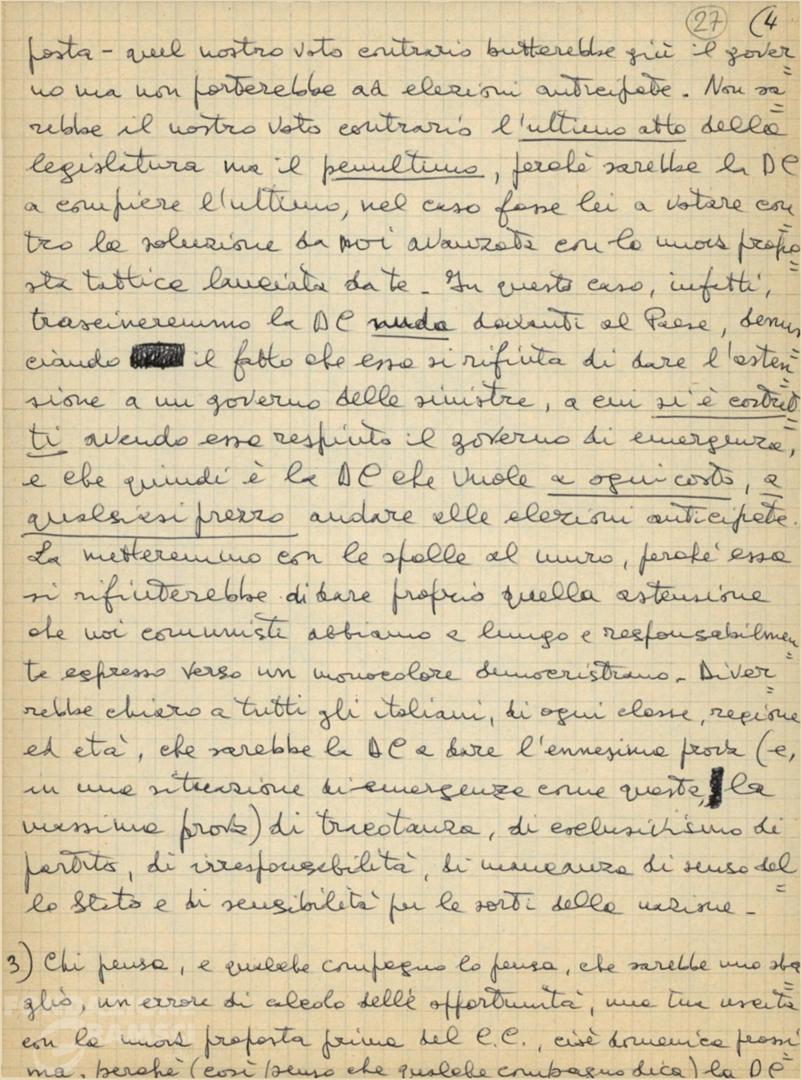 27 (4
posta - quel nostro voto contrario butterebbe giù il gover=
no ma non porterebbe ad elezioni anticipate. Non sa=
rebbe il nostro voto contrario l'ultimo atto della
legislatura ma il penultimo, perché sarebbe la DC
a compiere l'ultimo, nel caso fosse lei a votare con=
tro la soluzione da noi avanzata con la nuova propo=
sta tattica lanciata da te. In questo caso, infatti,
trascineremmo la DC nuda davanti al Paese, denun=
ciando il fatto che essa si rifiuta di dare l'asten=
sione a un governo delle sinistre, a cui si è costret=
ti avendo essa respinto il governo di emergenza,
e che quindi è la DC che vuole a ogni costo, a
qualsiasi prezzo andare alle elezioni anticipate.
La metteremmo con le spalle al muro, perché essa
si rifiuterebbe di dare proprio quella astensione
che noi comunisti abbiamo a lungo e responsabilmen=
te espresso verso un monocolore democristiano. Diver=
rebbe chiaro a tutti gli italiani, di ogni classe, regione
ed età, che sarebbe la DC a dare l'ennesima prova (e,
in una situazione di emergenza come questa, la
massima prova) di tracotanza, di esclusivismo di
partito, di irresponsabilità, di mancanza di senso del=
lo Stato e di sensibilità per le sorti della nazione.
3) Chi pensa, e qualche compagno lo pensa, che sarebbe uno sba=
glio, un errore di calcolo delle opportunità, una tua uscita
con la nuova proposta prima del C.C., cioè domenica prossi=
ma, perché (così penso che qualche compagno dica) la DC
GRAMSCI